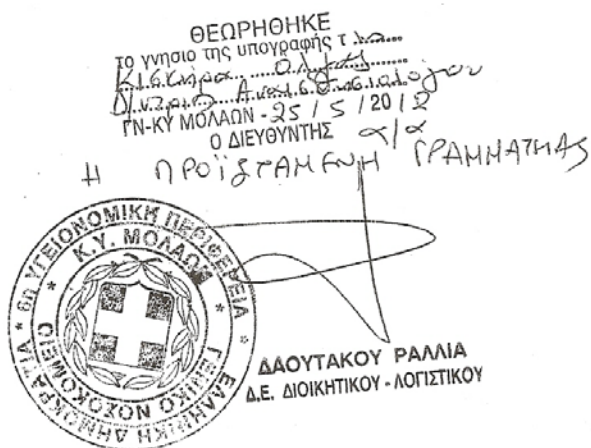 ΘΕΩΡΗΘΗΚΕ
το γνησιο της υπογραφής τ
ΓΝ-ΚΥ ΜΟΛΑΩΝ - 25 / 5 / 2012
Ο ΔΙΕΥΘΥΝΤΗΣ α/α
Η ΠΡΟΪΣΤΑΜΕΝΗ ΓΡΑΜΜΑΤΕΙΑΣ
ΕΛΛΗΝΙΚΗ ΔΗΜΟΚΡΑΤΙΑ * 6η ΥΓΕΙΟΝΟΜΙΚΗ ΠΕΡΙΦΕΡΕΙΑ *
Κ.Υ. ΜΟΛΑΩΝ * ΓΕΝΙΚΟ ΝΟΣΟΚΟΜΕΙΟ *
ΔΑΟΥΤΑΚΟΥ ΡΑΛΛΙΑ
Δ.Ε. ΔΙΟΙΚΗΤΙΚΟΥ - ΛΟΓΙΣΤΙΚΟΥ